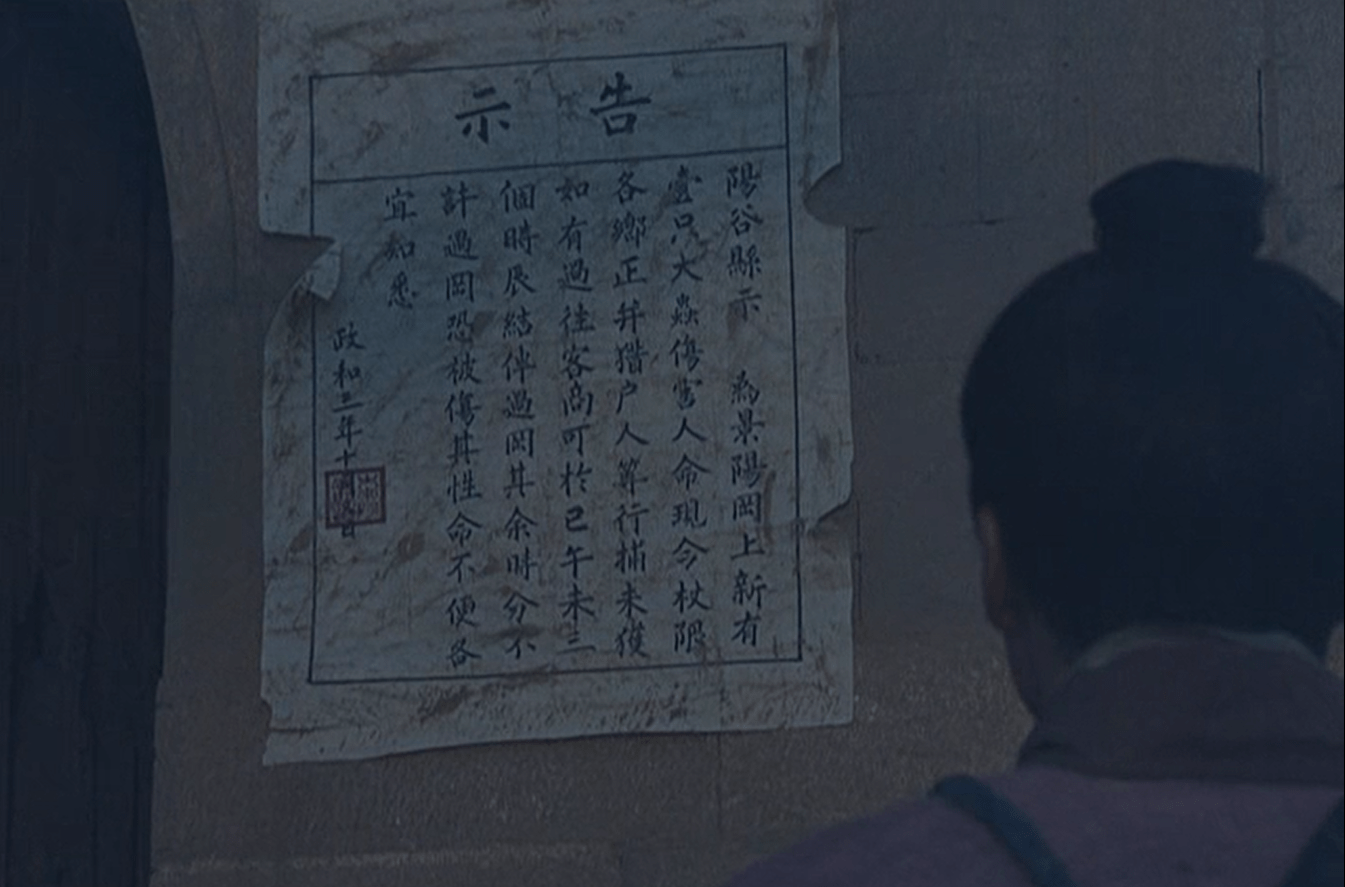 告示
陽谷縣示 為景陽岡上新有
壹只大蟲傷害人命現今杖限
各鄉正并獵户人等行捕未獲
如有過往客商可於巳午未三
個時辰結伴過岡其余時分不
許過岡恐被傷其性命不便各
宜知悉
政和三年十